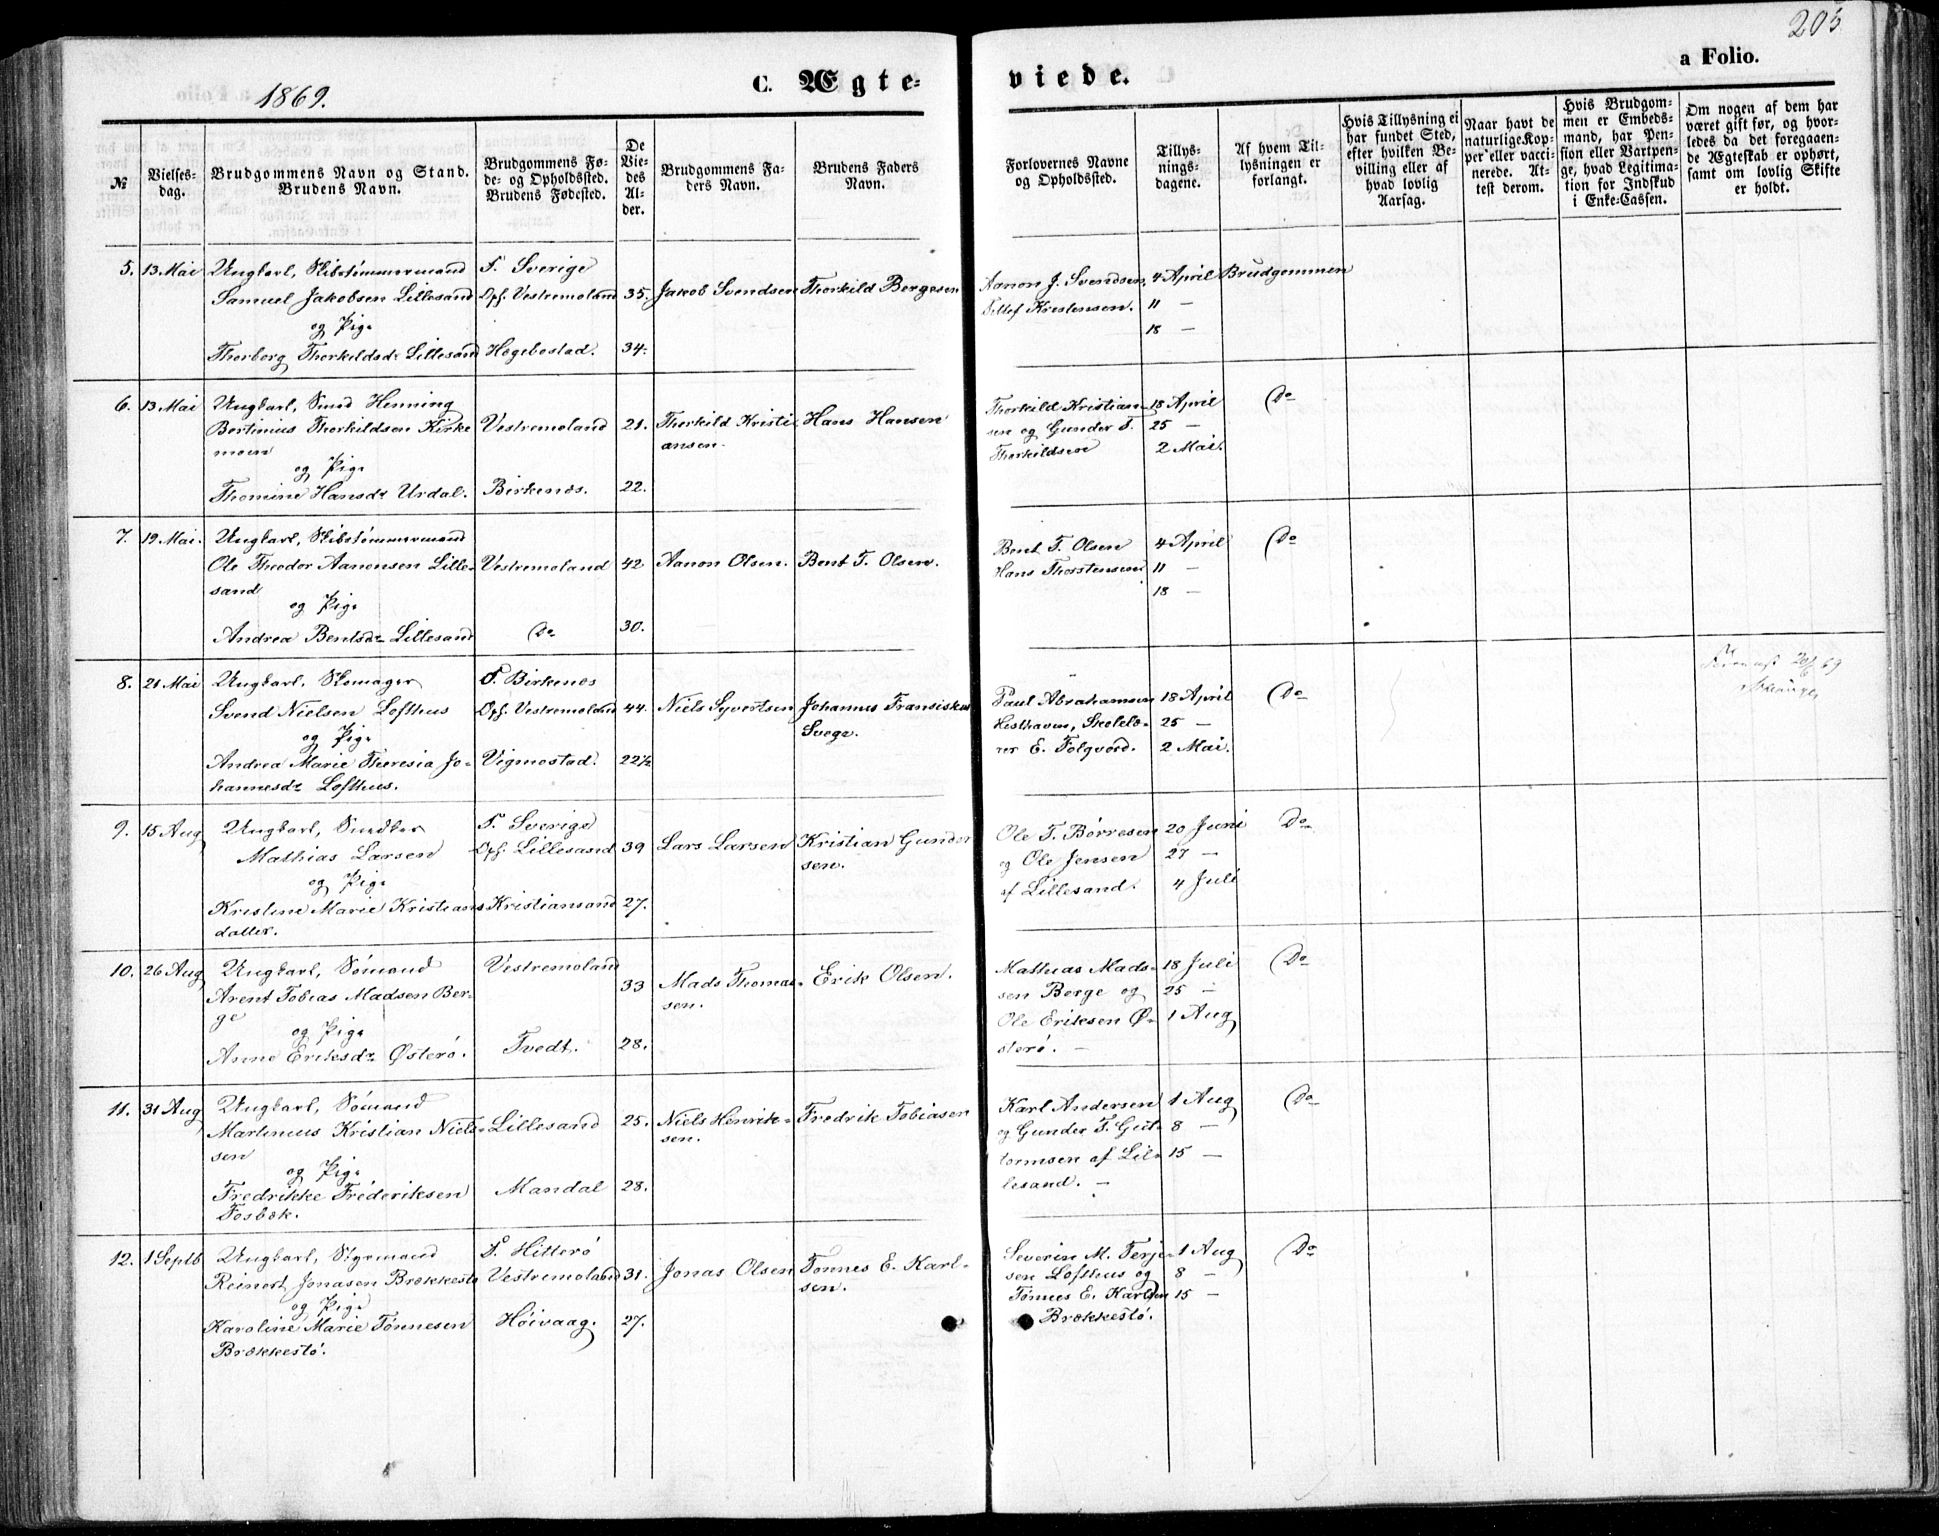 205
1869.
C. Ægte-
viede.
a Folio.
№
Vielses-
dag.
Brudgommens Navn og Stand.
Brudens Navn.
Brudgommens Fø-
de- og Opholdssted.
Brudens Fødested.
De
Vie-
des
Al-
der.
Brudgommens Fa-
ders Navn.
Brudens Faders
Navn.
Forlovernes Navne
og Opholdssted.
Tillys-
nings-
dagene.
Af hvem Til-
lysningen er
forlangt.
Hvis Tillysning ei
har fundet Sted,
efter hvilken Be-
villing eller af
hvad lovlig
Aarsag.
Naar havt de
naturlige Kop-
per eller vacci-
nerede. At-
test derom.
Hvis Brudgom-
men er Embeds-
mand, har Pen-
sion eller Vartpen-
ge, hvad Legitima-
tion for Indskud
i Enke-Cassen.
Om nogen af dem har
været gift før, og hvor-
ledes da det foregaaen-
de Ægteskab er ophørt,
samt om lovlig Skifte
er holdt.
5. 13 Mai
Ungkarl, Skibstømmermand
Samuel Jakobsen Lillesand
og Pige
Thorborg Thorkildsdr Lillesand
F. Sverige
Oph. Vestremoland
Hegebostad.
35.
34.
Jakob Svendsen
Thorkild Bergesen
Aanon J. Svendsen,
Ditlef Kristensen.
4 April
11 —
18 —
Brudgommen
6. 13 Mai
Ungkarl, Smed Henning
Bertinius Thorkildsen Kirke
moen
og Pige
Thomine Hansdr Urdal.
Vestremoland
Birkenes.
21.
22.
Thorkild Kristi
ansen.
Hans Hansen
Thorkild Kristian-
sen og Gunder T.
Thorkildsen
18 April
25 —
2 Mai.
Do
7. 19 Mai.
Ungkarl, Skibstømmermand
Ole Theodor Aanonsen Lille-
sand
og Pige
Andrea Bentsdr Lillesand
Vestremoland
Do
42
30.
Aanon Olsen.
Bent T. Olsen.
Bent T. Olsen
Hans Thorstensen
4 April
11 —
18 —
Do
8. 21 Mai
Ungkarl, Skomager
Svend Nielsen Lofthus
og Pige
Andrea Marie Theresia Jo-
hannesdr Lofthus.
F. Birkenes
Oph. Vestremoland
Vigmostad.
44.
22½
Niels Syvertsen
Johannes Fransiskus
Svege.
Paul Abrahamsen
Hesthaven, Skolelæ-
rer E. Folqvord.
18 April
25 —
2 Mai.
Do
9. 15 Aug
Ungkarl, Snedker
Mathias Larsen
og Pige
Kristine Marie Kristians
datter.
F. Sverige
Oph. Lillesand
Kristiansand
39
27.
Lars Larsen
Kristian Gunder
sen.
Ole T. Børresen
og Ole Jensen
af Lillesand.
20 Juni
27 —
4 Juli
Do
10. 26 Aug
Ungkarl, Sømand
Arent Tobias Madsen Ber-
ge
og Pige
Anne Eriksdr Østerø.
Vestremoland
Tvedt.
33
28.
Mads Thomas-
sen.
Erik Olsen.
Mathias Mads-
sen Berge og
Ole Eriksen Ø-
sterø. —
18 Juli
25 —
1 Aug
Do
11. 31 Aug
Ungkarl, Sømand
Martinius Kristian Niel-
sen
og Pige
Fredrikke Fréderiksen
Fosbæk.
Lillesand
Mandal
25.
28.
Niels Henrik-
sen.
Fredrik Tobiasen
Karl Andersen
og Gunder T. Gut-
tormsen af Lil-
lesand. —
1 Aug
8 —
15 —
Do
12. 1 Septb
Ungkarl, Styrmand
Reinert Jonasen Brækkestø
og Pige
Karoline Marie Tønnesen
Brækkestø.
F. Hitterø
Vestremoland
Høivaag.
31.
27.
Jonas Olsen
Tønnes E. Karl-
sen.
Severin M. Terje-
sen Lofthus og
Tønnes E. Karlsen
Brækkestø.
1 Aug
8 —
15 —
Do